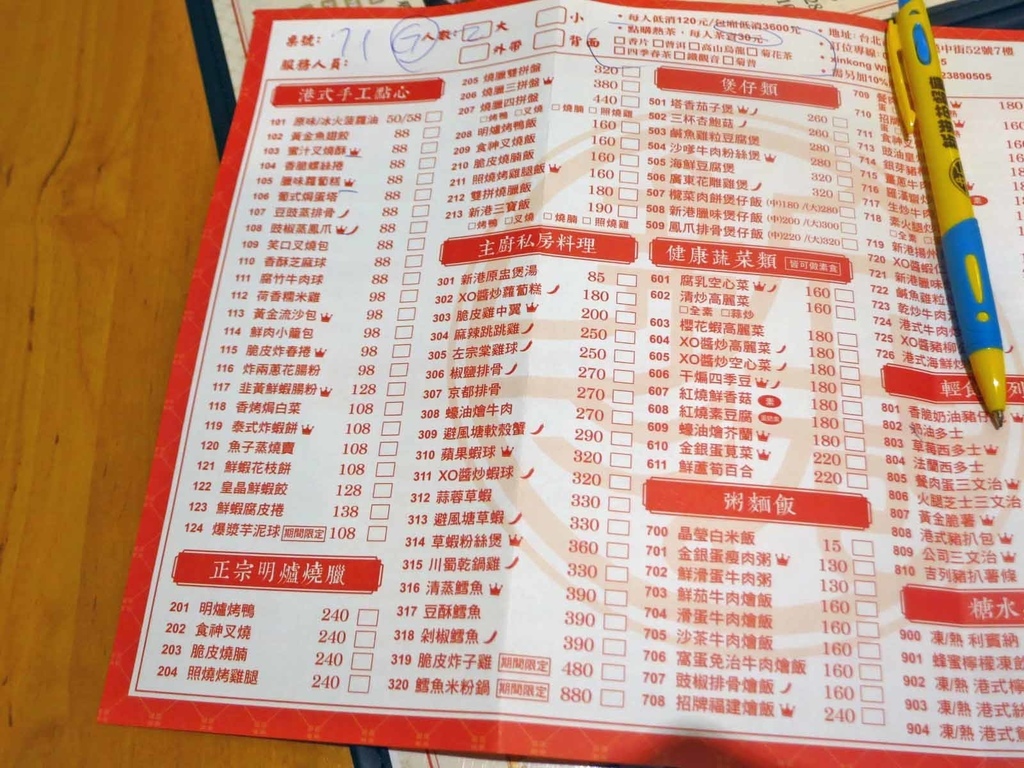 桌號: 71 ⑦ 人數: 2 大 小
服務人員: 外帶 背面
• 每人低消120元/包廂低消3600元
• 點購熱茶，每人茶資30元
香片 普洱 高山烏龍 菊花茶
四季春茶 鐵觀音 菊普
• 地址: 台北
中街52號7樓
• 訂位專線:
inkong W
23890505
另加10%
港式手工點心
101 原味/冰火菠蘿油 50/58
102 黃金魚翅餃 88
103 蜜汁叉燒酥 88
104 香脆螺絲捲 88
105 臘味蘿蔔糕 88
106 葡式焗蛋塔 88
107 豆豉蒸排骨 88
108 豉椒蒸鳳爪 88
109 笑口叉燒包 88
110 香酥芝麻球 88
111 腐竹牛肉球 88
112 荷香糯米雞 98
113 黃金流沙包 98
114 鮮肉小籠包 98
115 脆皮炸春捲 98
116 炸兩蔥花腸粉 98
117 韭黃鮮蝦腸粉 128
118 香烤焗白菜 108
119 泰式炸蝦餅 108
120 魚子蒸燒賣 108
121 鮮蝦花枝餅 108
122 皇晶鮮蝦餃 128
123 鮮蝦腐皮捲 138
124 爆漿芋泥球 期間限定 108
正宗明爐燒臘
201 明爐烤鴨 240
202 食神叉燒 240
203 脆皮燒腩 240
204 照燒烤雞腿 240
205 燒臘雙拼盤 320
206 燒臘三拼盤 380
207 燒臘四拼盤 440
烤鴨 叉燒 燒腩 照燒雞
208 明爐烤鴨飯 160
209 食神叉燒飯 160
210 脆皮燒腩飯 160
211 照燒烤雞腿飯 160
212 雙拼燒臘飯 180
213 新港三寶飯 190
烤鴨 叉燒 燒腩 照燒雞
主廚私房料理
301 新港原盅煲湯 85
302 XO醬炒蘿蔔糕 180
303 脆皮雞中翼 200
304 麻辣跳跳雞 250
305 左宗棠雞球 250
306 椒鹽排骨 270
307 京都排骨 270
308 蠔油燴牛肉 270
309 避風塘軟殼蟹 290
310 蘋果蝦球 320
311 XO醬炒蝦球 320
312 蒜蓉草蝦 330
313 避風塘草蝦 330
314 草蝦粉絲煲 360
315 川蜀乾鍋雞 330
316 清蒸鱈魚 390
317 豆酥鱈魚 390
318 剁椒鱈魚 390
319 脆皮炸子雞 期間限定 480
320 鱈魚米粉鍋 期間限定 880
煲仔類
501 塔香茄子煲 260
502 三杯杏鮑菇 260
503 鹹魚雞粒豆腐煲 280
504 沙嗲牛肉粉絲煲 280
505 海鮮豆腐煲 320
506 廣東花雕雞煲 320
507 欖菜肉餅煲仔飯 (中)180 /(大)280
508 新港臘味煲仔飯 (中)200 /(大)300
509 鳳爪排骨煲仔飯 (中)220 /(大)320
健康蔬菜類 皆可做素食
601 腐乳空心菜 160
602 清炒高麗菜 160
全素 蒜炒
603 櫻花蝦高麗菜 180
604 XO醬炒高麗菜 180
605 XO醬炒空心菜 180
606 干煸四季豆 180
607 紅燒鮮香菇 素 180
608 紅燒素豆腐 180
609 蠔油燴芥蘭 180
610 金銀蛋莧菜 220
611 鮮蘆筍百合 220
粥麵飯
700 晶瑩白米飯 15
701 金銀蛋瘦肉粥 130
702 鮮滑蛋牛肉粥 130
703 鮮茄牛肉燴飯 160
704 滑蛋牛肉燴飯 160
705 沙茶牛肉燴飯 160
706 窩蛋免治牛肉燴飯 160
707 豉椒排骨燴飯 160
708 招牌福建燴飯 240
709
710 招牌
711 食神叉
713 豉油皇
714 銀芽
715
716
717 生炒牛
718 素火腿
全素
719 新港揚州
720 XO醬蝦仁
721 新港臘味
722 鹹魚雞粒
723 乾炒牛肉
724 港式牛肉
725 XO醬豬柳
726 港式海鮮炒
輕食 列
801 香脆奶油豬仔
802 奶油多士
803 草莓西多士
804 法蘭西多士
805 餐肉蛋三文治
806 火腿芝士三文治
807 黃金脆薯
808 港式豬扒包
809 公司三文治
810 吉列豬扒薯條
糖水
900 凍/熱 利賓納
901 蜂蜜檸檬凍飲
902 凍/熱 港式檸
903 凍/熱 港式絲
904 凍/熱 港式